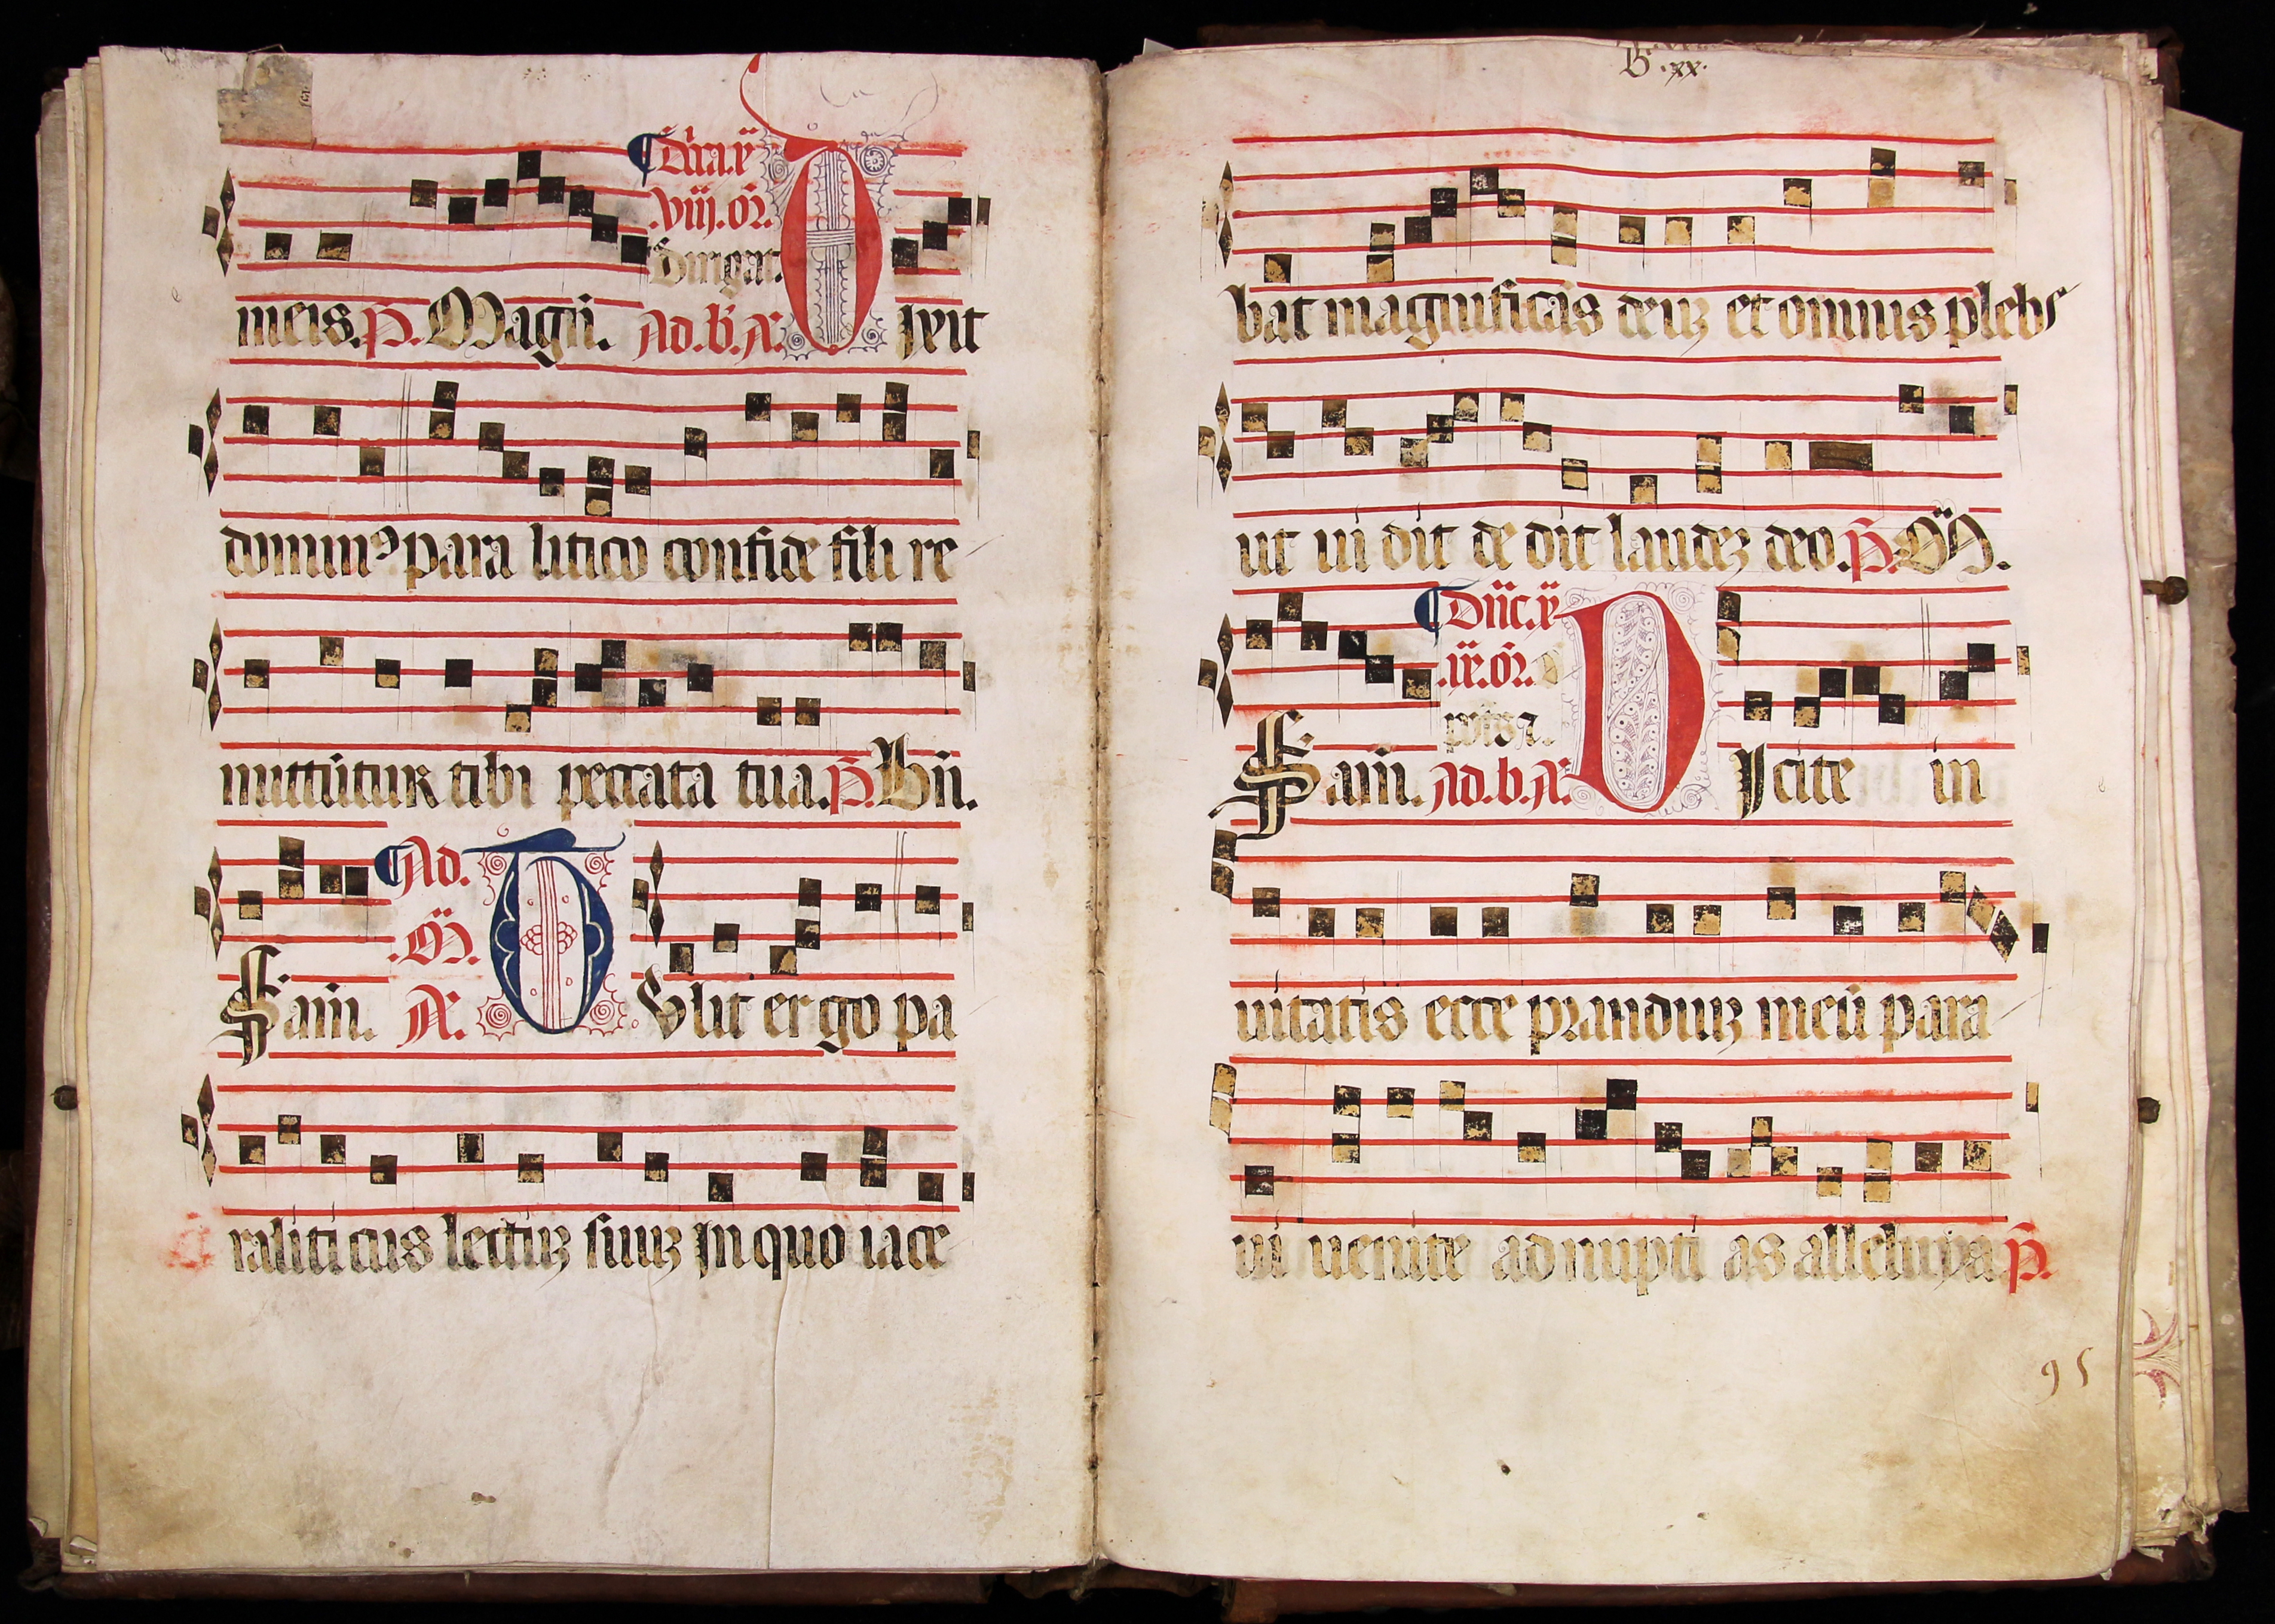 Dn̄ica.x̄
.viij.or̄.
Dirigat.
meis.p̄. Magn̄. Ad.b̄.Ā. D ixit
domin⁹ para litico confide fili re
mittūtur tibi peccata tua.p̄.Bn̄.
Ad.
.M̄.
Sam̄. Ā. T Vlit ergo pa
raliti cus lectuꝫ suuꝫ in quo iace
B.xx.
bat magnificās deuꝫ et omnis plebs
ut ui dit de dit laudeꝫ deo.p̄.M̄.
Dn̄ic.x̄
.ix.or̄.
Sam̄. Ad.b.Ā. D Icite in
uitatis ecce pranduiꝫ meū para
ui uenite ad nupti as alleluya.p̄.
95